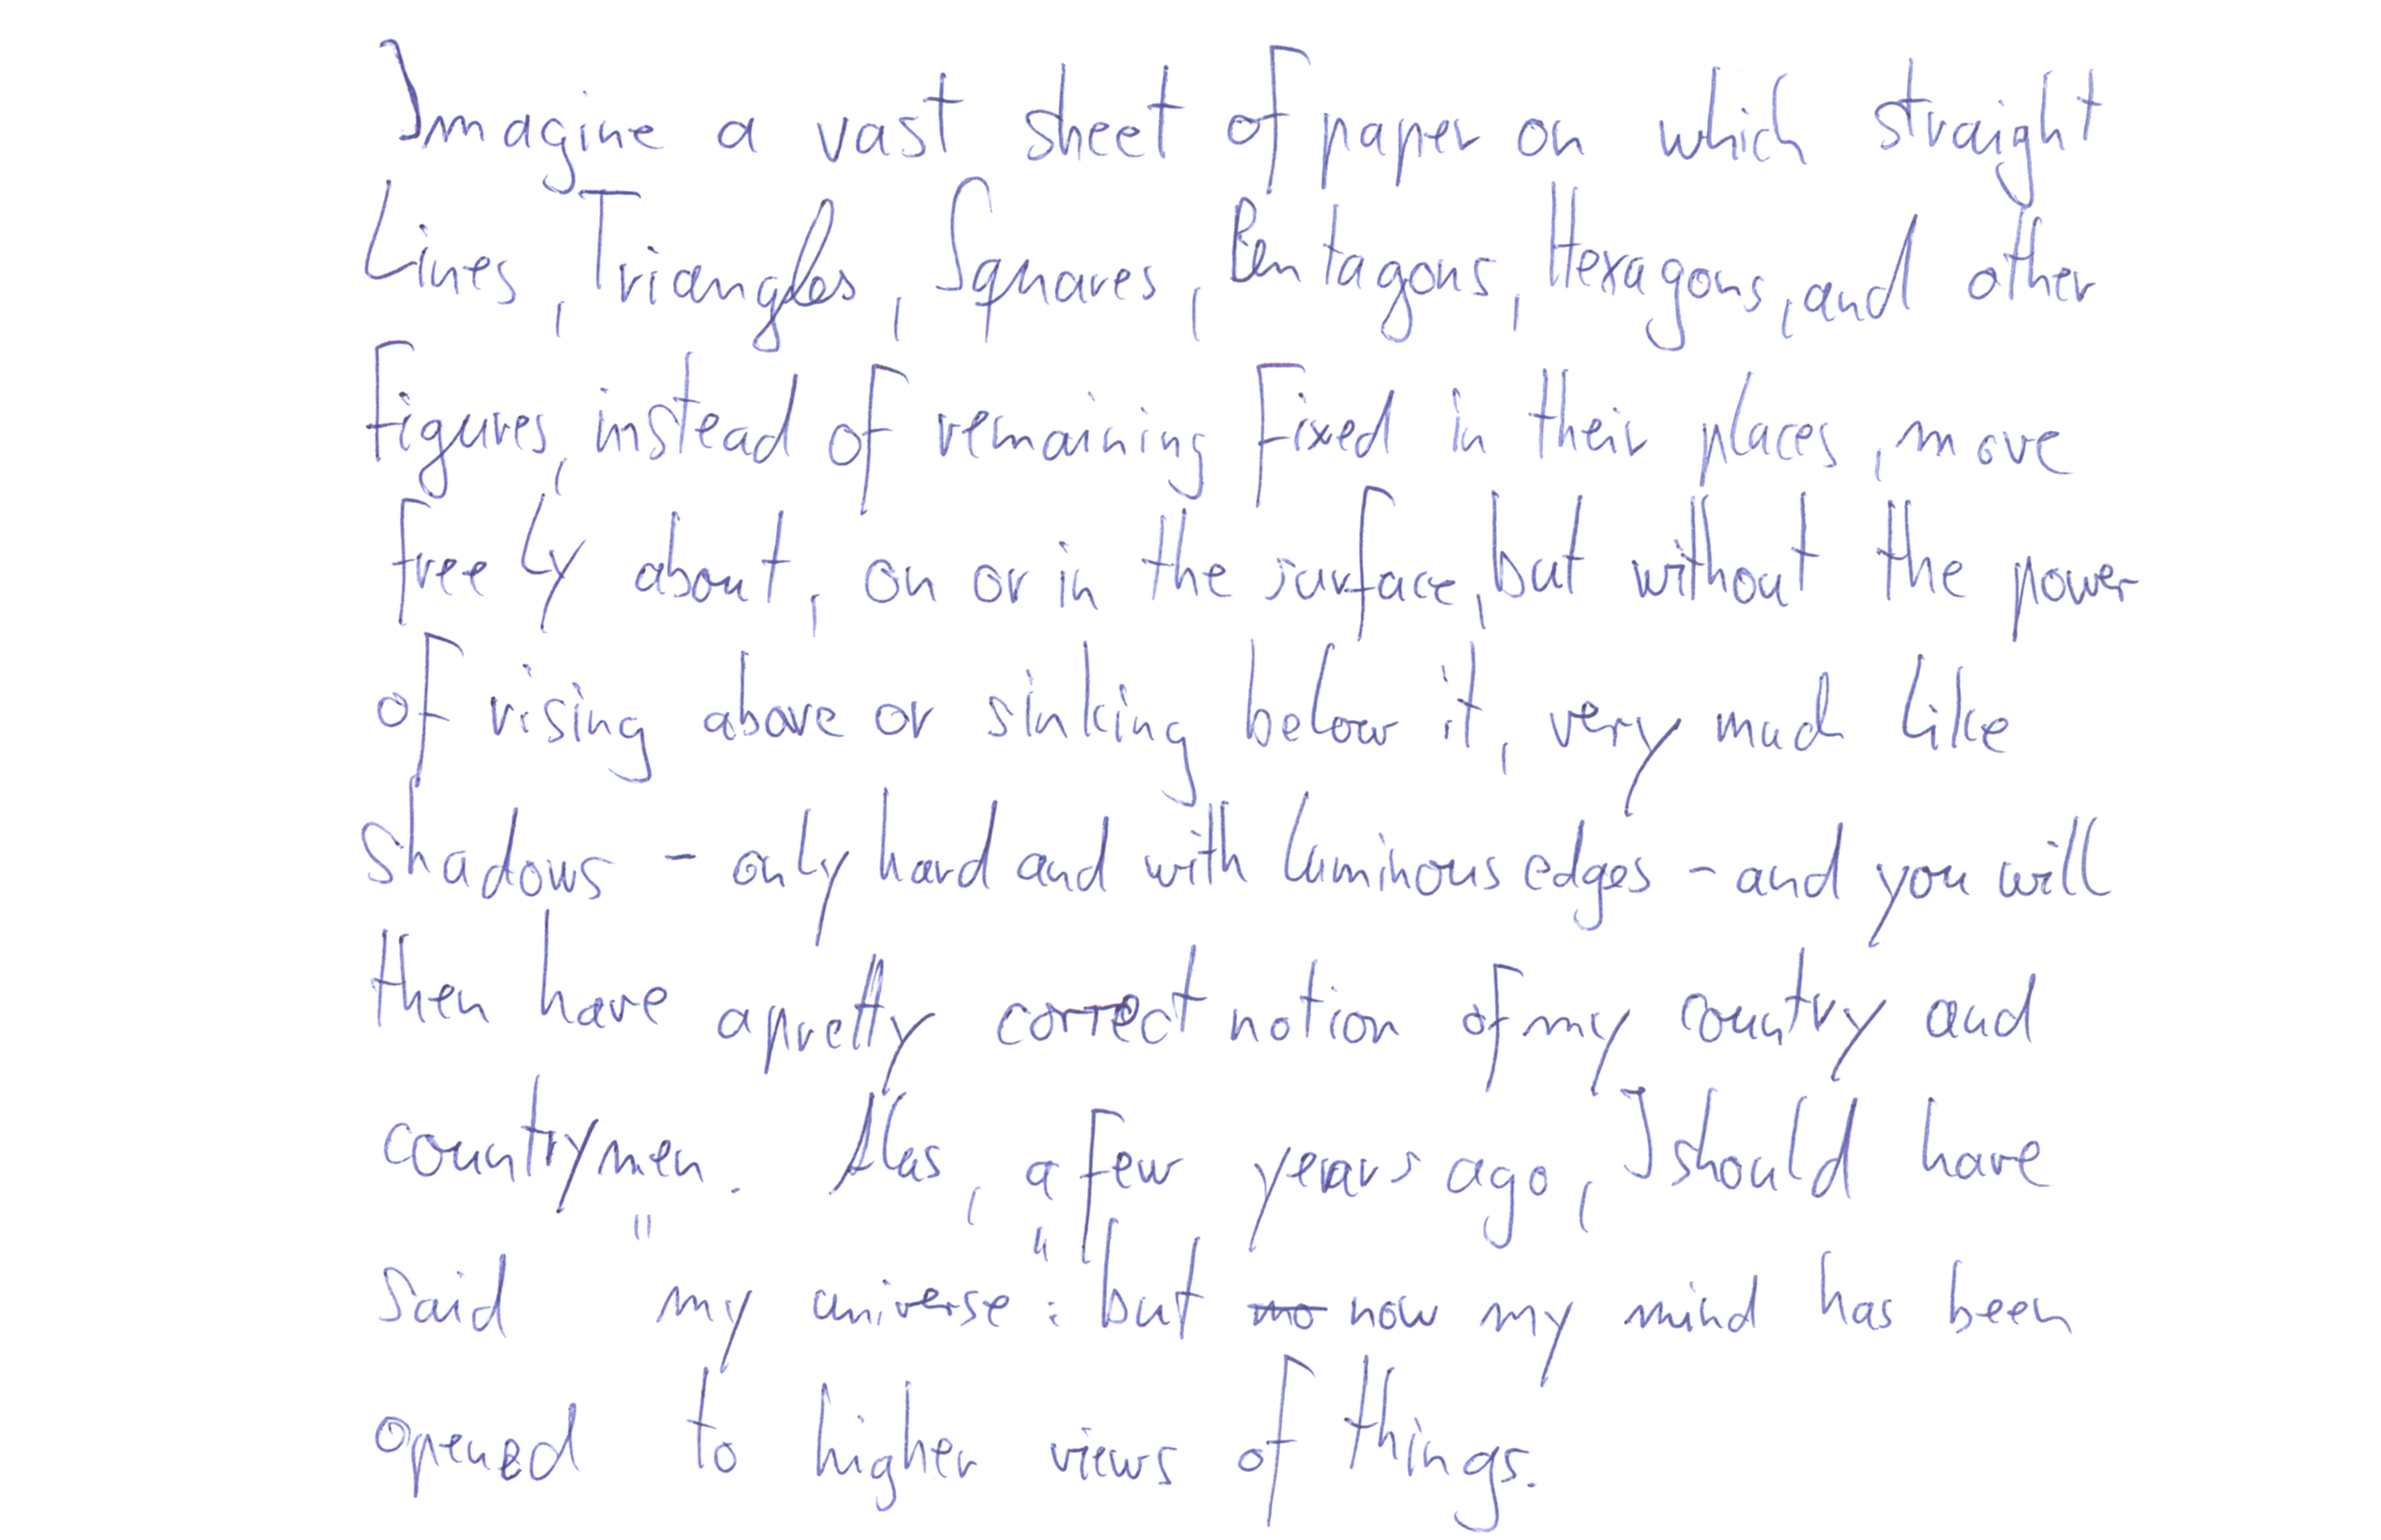 Imagine a vast sheet of paper on which straight
Lines, Triangles, Squares, Pentagons, Hexagons, and other
figures, instead of remaining fixed in their places, move
freely about, on or in the surface, but without the power
of rising above or sinking below it, very much like
shadows - only hard and with luminous edges - and you will
then have a pretty correct notion of my country and
countrymen. Alas, a few years ago, I should have
said "my universe": but ~~mo~~ now my mind has been
opened to higher views of things.